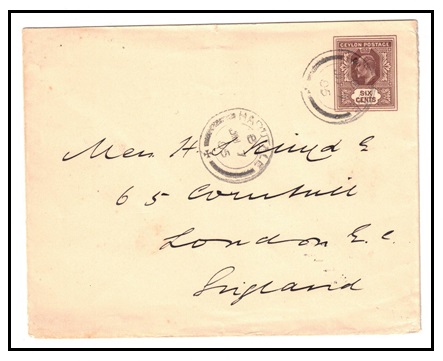 CEYLON POSTAGE
SIX
CENTS
05
05
H. S.
65 Cornhill
London E.C.
England